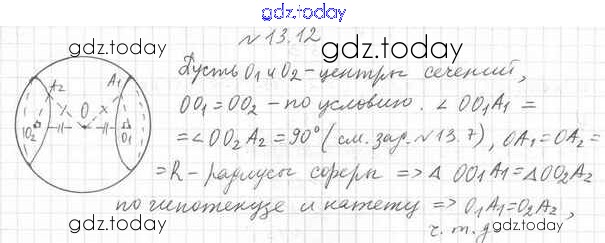 gdz.today
№13.12
gdz.today
gdz.today
Пусть O₁ и O₂ - центры сечений,
OO₁ = OO₂ - по условию. ∠ OO₁A₁ =
= ∠ OO₂A₂ = 90° (см. зад. №13.7), OA₁ = OA₂ =
= R - радиусы сферы => Δ OO₁A₁ = Δ OO₂A₂
по гипотенузе и катету => O₁A₁ = O₂A₂,
ч.т.д.
A₂ A₁
O
O₂ O₁
gdz.today
gdz.today